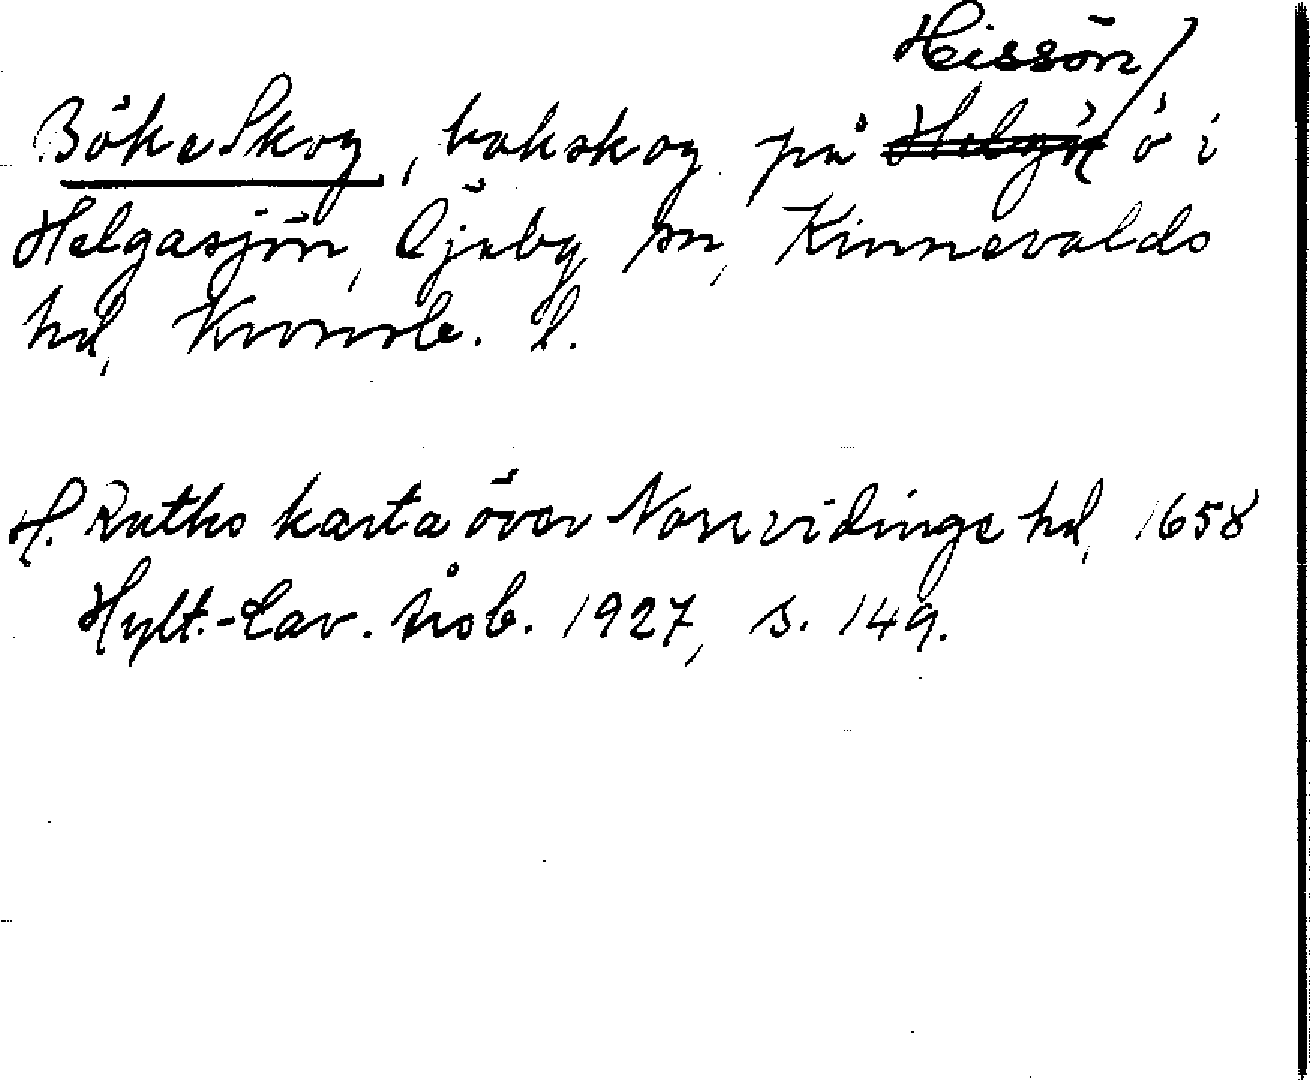 Hissön/
Böke Skog, bokskog på Helgön ö i
Helgasjön, Öjaby sn, Kinnevalds
hd, Kronob. l.
H. Ruths karta över Norrvidinge hd, 1658
Hylt.-Cav. årsb. 1927, s. 149.